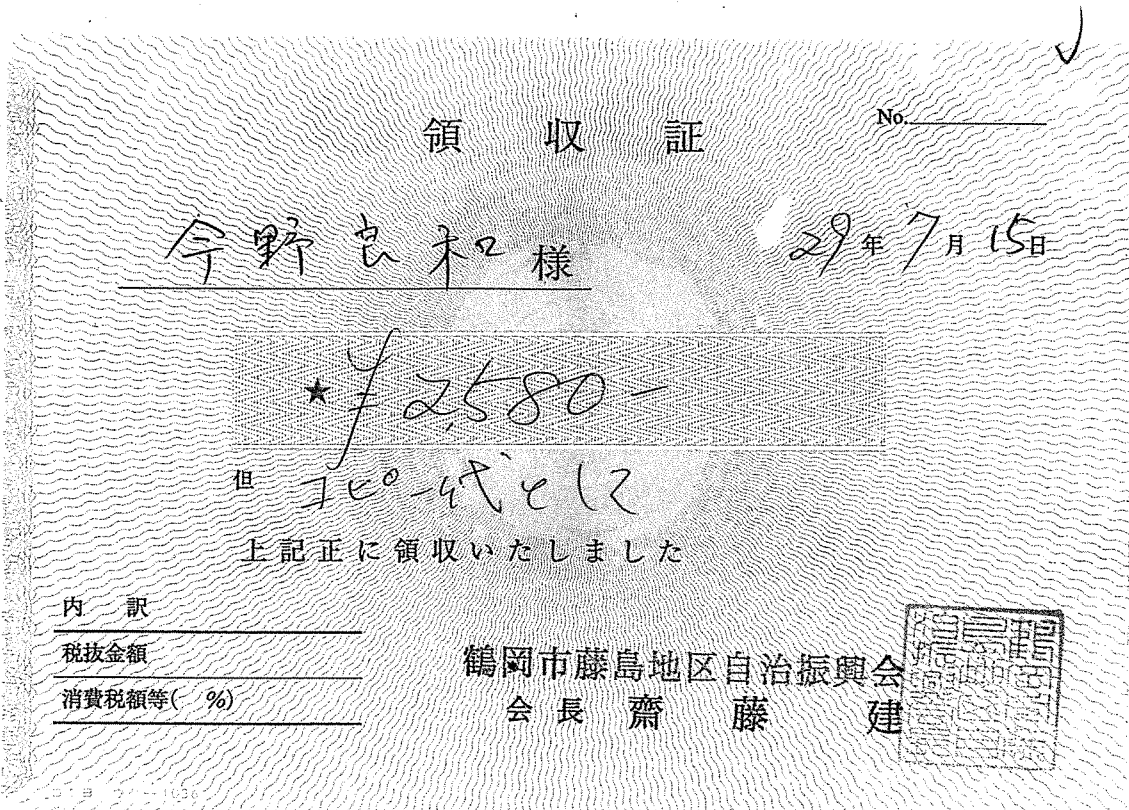 領 収 証
No.
今野良和 様
29年7月15日
★ ¥2,580-
但 コピー代として
上記正に領収いたしました
内 訳
税抜金額
消費税額等( %)
鶴岡市藤島地区自治振興会
会長 齋藤 建